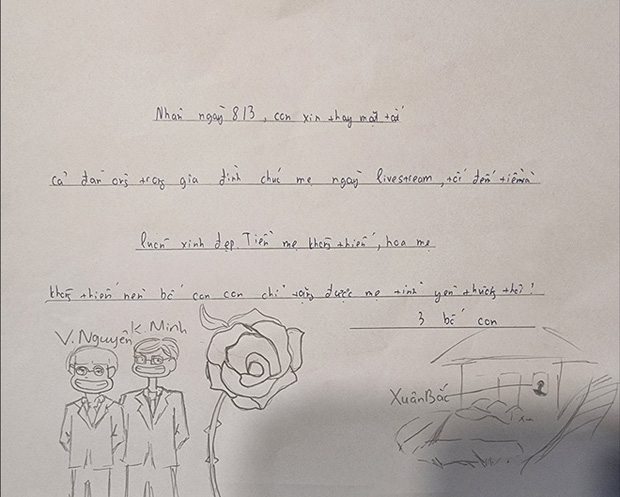 Nhân ngày 8/3, con xin thay mặt tất
cả đàn ông trong gia đình chúc mẹ ngày livestream, tối đếm tiền và
luôn xinh đẹp. Tiền mẹ không thiếu, hoa mẹ
không thiếu nên bố con con chỉ tặng được mẹ tình yêu thương thôi!
3 bố con
V. Nguyên K. Minh
Xuân Bắc